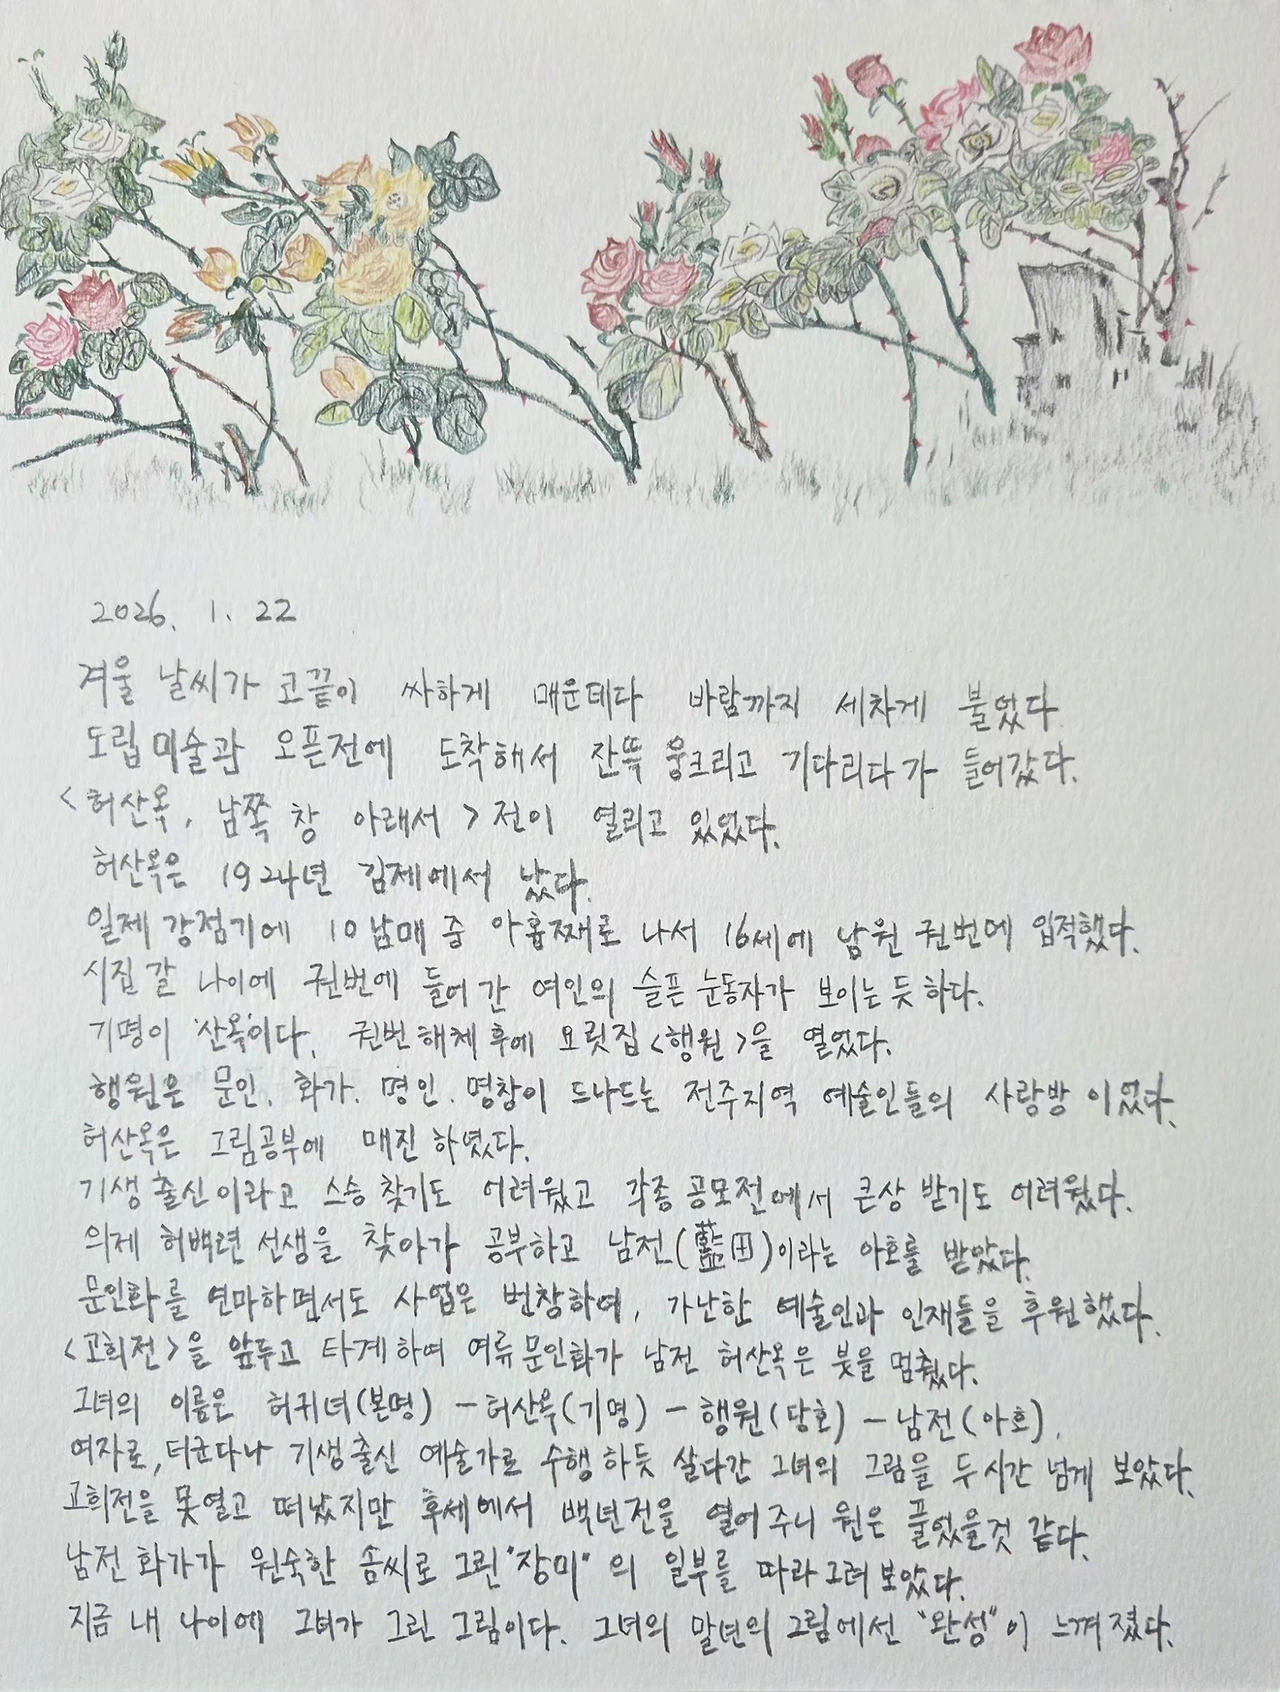 2026. 1. 22
겨울 날씨가 코끝이 싸하게 매운데다 바람까지 세차게 불었다
도립미술관 오픈전에 도착해서 잔뜩 웅크리고 기다리다가 들어갔다.
<허산옥, 남쪽 창 아래서>전이 열리고 있었다.
허산옥은 1924년 김제에서 났다.
일제 강점기에 10남매 중 아홉째로 나서 16세에 남원 권번에 입적했다.
시집 갈 나이에 권번에 들어간 여인의 슬픈 눈동자가 보이는 듯하다.
기명이 '산옥'이다. 권번 해체 후에 요릿집<행원>을 열었다.
행원은 문인. 화가. 명인. 명창이 드나드는 전주지역 예술인들의 사랑방 이었다.
허산옥은 그림공부에 매진 하였다.
기생 출신이라고 스승 찾기도 어려웠고 각종 공모전에서 큰상 받기도 어려웠다.
의제 허백련 선생을 찾아가 공부하고 남전(藍田)이라는 아호를 받았다.
문인화를 연마하면서도 사업은 번창하여, 가난한 예술인과 인재들을 후원했다.
<고희전>을 앞두고 타계하여 여류문인화가 남전 허산옥은 붓을 멈췄다.
그녀의 이름은 허귀녀(본명) - 허산옥(기명) - 행원(당호) - 남전(아호).
여자로, 더군다나 기생출신 예술가로 수행하듯 살다간 그녀의 그림을 두시간 넘게 보았다.
고희전을 못열고 떠났지만 후세에서 백년전을 열어주니 원은 풀었을것 같다.
남전 화가가 원숙한 솜씨로 그린 "장미"의 일부를 따라 그려 보았다.
지금 내 나이에 그녀가 그린 그림이다. 그녀의 말년의 그림에선 "완성"이 느껴졌다.